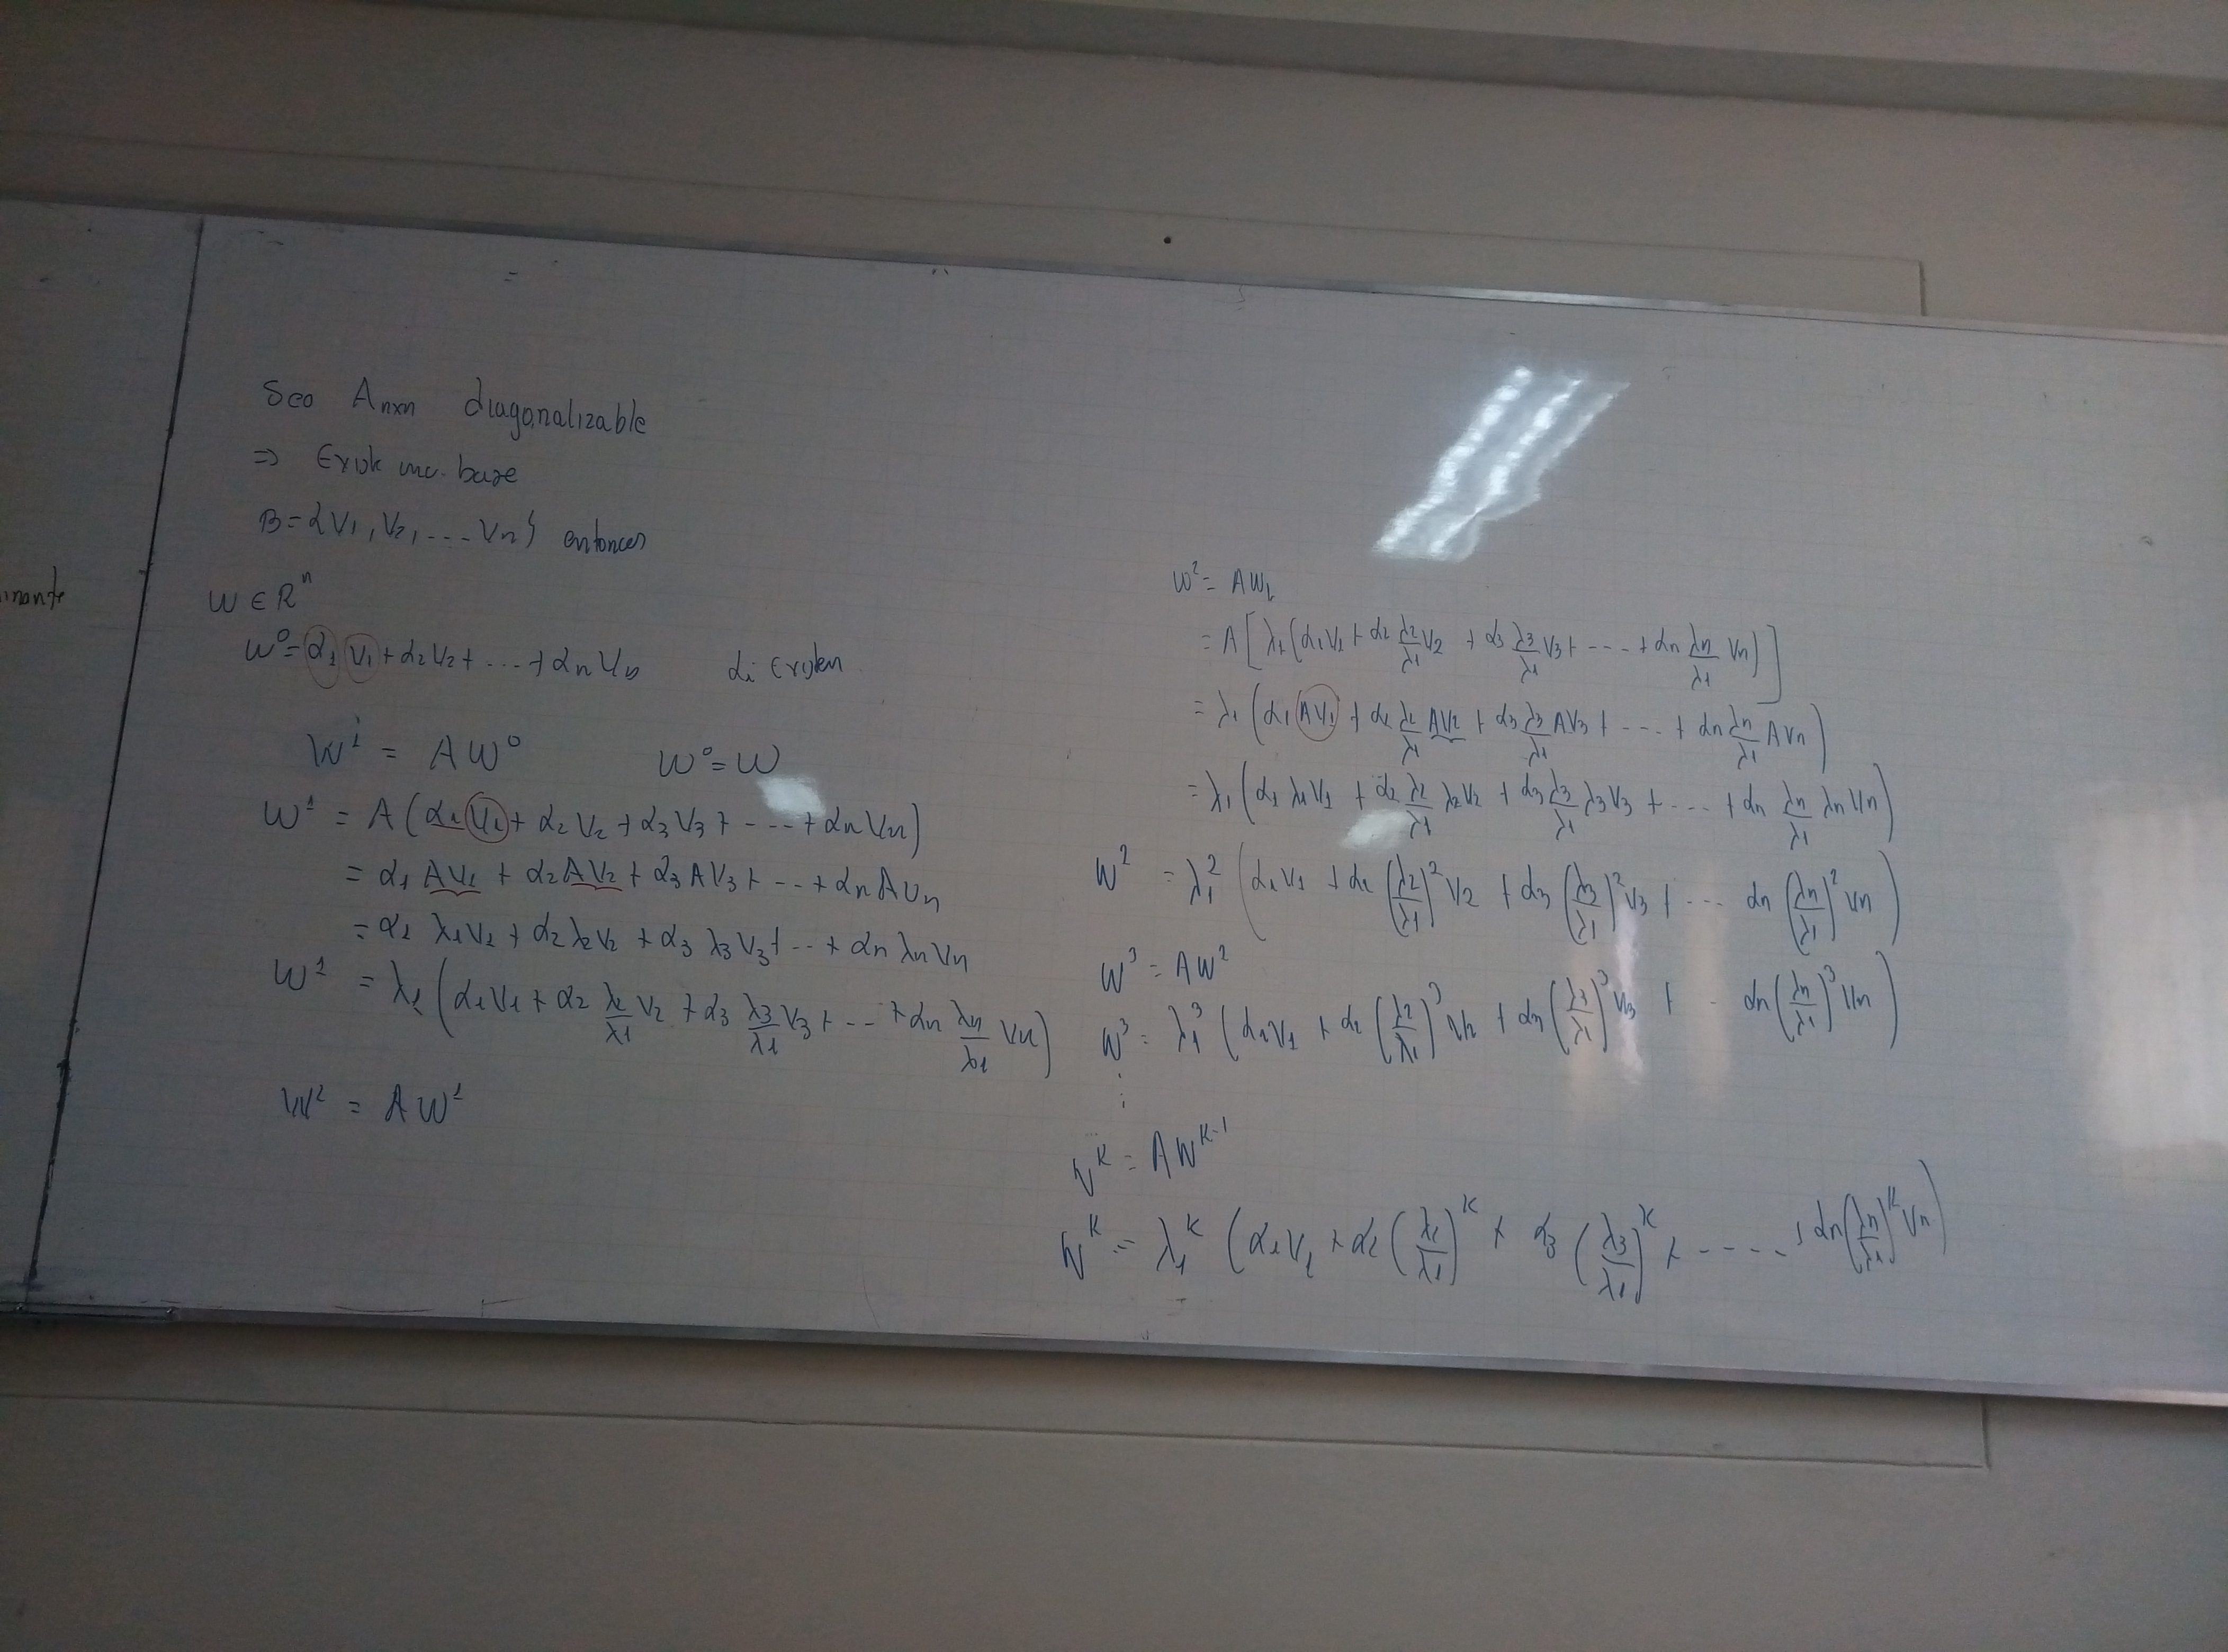 Sea Anxn diagonalizable
⇒ Existe una base
B = {V1, V2, ... Vn} entonces
W ∈ R^n
W^0 = α1 V1 + α2 V2 + ... + αn Vn αi Existen
W^1 = A W^0 W^0 = W
W^1 = A(α1 V1 + α2 V2 + α3 V3 + ... + αn Vn)
= α1 AV1 + α2 AV2 + α3 AV3 + ... + αn AVn
= α1 λ1 V1 + α2 λ2 V2 + α3 λ3 V3 + ... + αn λn Vn
W^1 = λ1 (α1 V1 + α2 λ2/λ1 V2 + α3 λ3/λ1 V3 + ... + αn λn/λ1 Vn)
W^2 = A W^1
W^2 = A W1
= A[λ1(α1 V1 + α2 λ2/λ1 V2 + α3 λ3/λ1 V3 + ... + αn λn/λ1 Vn)]
= λ1 (α1 AV1 + α2 λ2/λ1 AV2 + α3 λ3/λ1 AV3 + ... + αn λn/λ1 AVn)
= λ1 (α1 λ1 V1 + α2 λ2/λ1 λ2 V2 + α3 λ3/λ1 λ3 V3 + ... + αn λn/λ1 λn Vn)
W^2 = λ1^2 (α1 V1 + α2 (λ2/λ1)^2 V2 + α3 (λ3/λ1)^2 V3 + ... αn (λn/λ1)^2 Vn)
W^3 = A W^2
W^3 = λ1^3 (α1 V1 + α2 (λ2/λ1)^3 V2 + α3 (λ3/λ1)^3 V3 + - αn (λn/λ1)^3 Vn)
⋮
W^K = A W^K-1
W^K = λ1^K (α1 V1 + α2 (λ2/λ1)^K + α3 (λ3/λ1)^K + ..... + αn (λn/λ1)^K Vn)